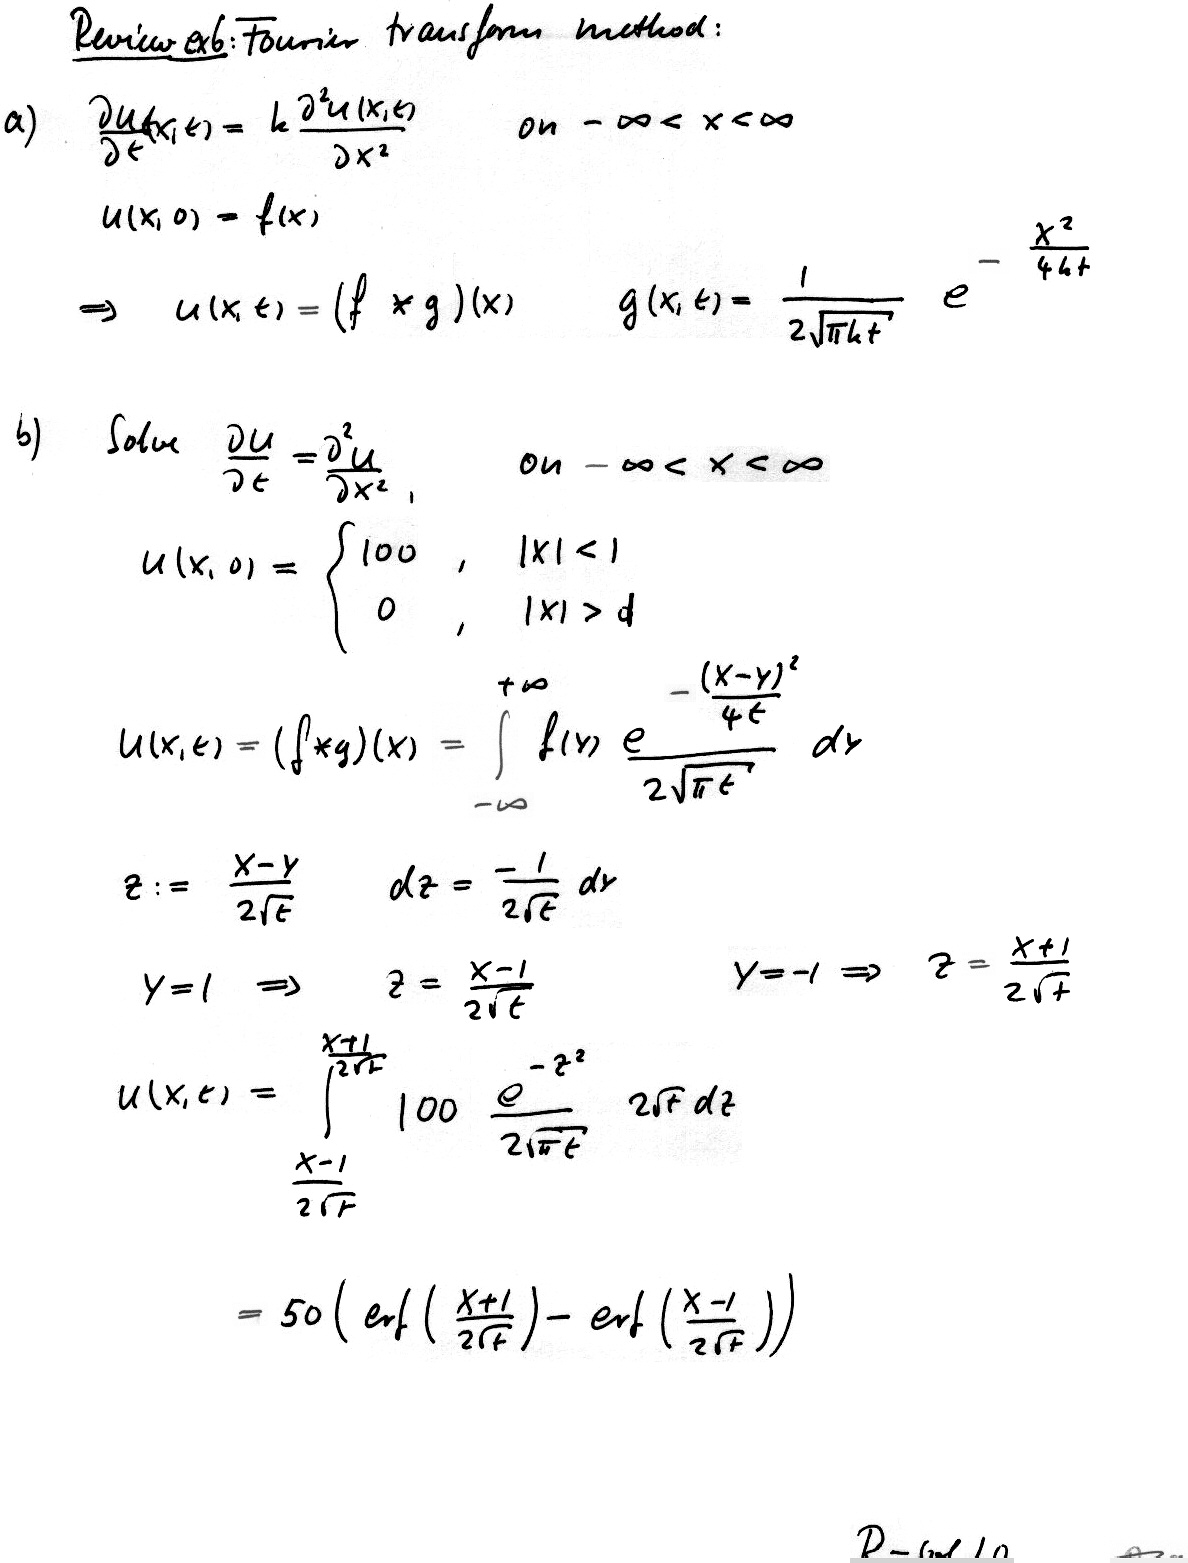 Review ex6: Fourier transform method:
a) ∂u/∂t (x,t) = k ∂²u(x,t)/∂x² on -∞ < x < ∞
u(x,0) = f(x)
⇒ u(x,t) = (f * g)(x) g(x,t) = 1/(2√(πkt)) e^(-x²/(4kt))
b) Solve ∂u/∂t = ∂²u/∂x², on -∞ < x < ∞
u(x,0) = { 100 , |x| < 1
0 , |x| > d
u(x,t) = (f*g)(x) = ∫_{-∞}^{+∞} f(y) e^(-(x-y)²/(4t))/(2√(πt)) dy
z := (x-y)/(2√t) dz = -1/(2√t) dy
y=1 ⇒ z = (x-1)/(2√t) y=-1 ⇒ z = (x+1)/(2√t)
u(x,t) = ∫_{(x-1)/(2√t)}^{(x+1)/(2√t)} 100 e^(-z²)/(2√(πt)) 2√t dz
= 50 ( erf( (x+1)/(2√t) ) - erf( (x-1)/(2√t) ))